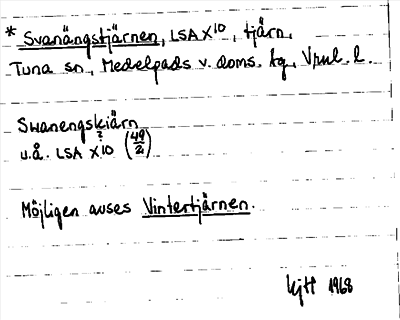 * Svanängstjärnen, LSA X10, tjärn,
Tuna sn, Medelpads v. doms. tg, Vnrl. l.
Swanengskiärn
?
u.å. LSA X10 (49/21)
Möjligen avses Vintertjärnen.
1968